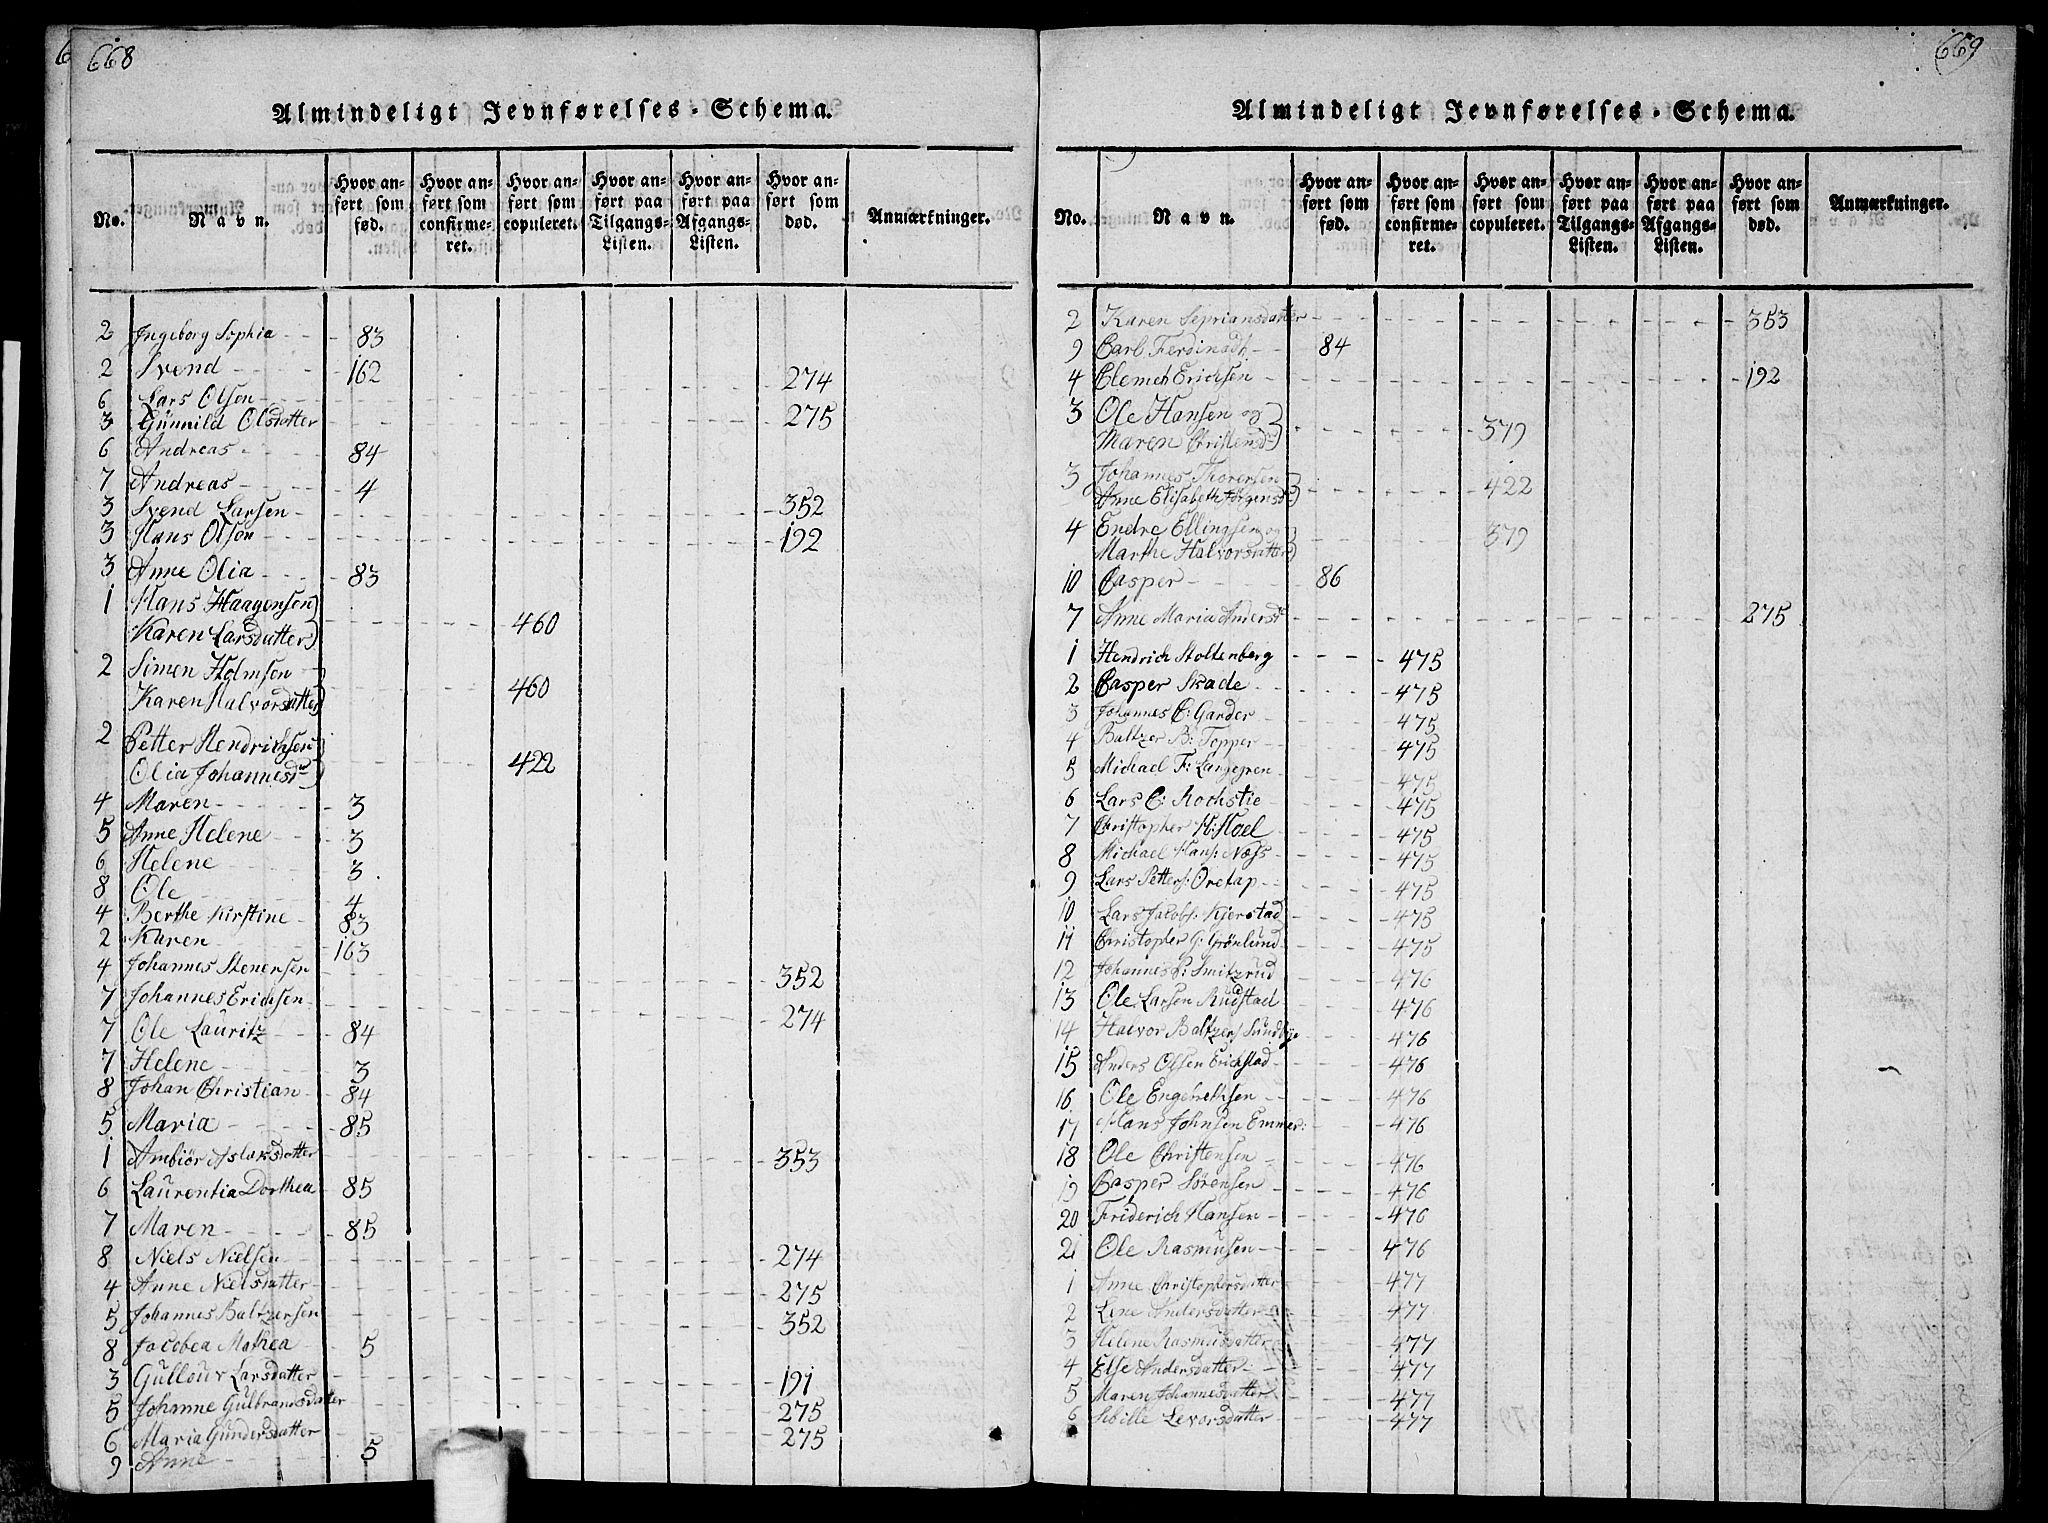 668
Almindeligt Jevnførelses-Schema.
No. Navn. Hvor anført som fød. Hvor anført som confirmeret. Hvor anført som copuleret. Hvor anført paa Tilgangs-Listen. Hvor anført paa Afgangs-Listen. Hvor anført som død. Anmærkninger.
2 Ingeborg Sophia 83
2 Svend 162
6 Lars Olsen 274
3 Günnild Olsdatter 275
6 Andreas 84
7 Andreas 4
3 Svend Larsen 352
3 Hans Olsøn 192
3 Anne Olia 83
1 Hans Haagensen
Karen Larsdatter 460
2 Simen Holmsen
Karen Halvorsdatter 460
2 Petter Hendrichsen
Olia Johannesdr 422
4 Maren 3
5 Anne Helene 3
6 Helene 3
8 Ole 4
4 Berthe Kirstine 83
2 Karen 163
4 Johannes Stenersen 352
7 Johannes Erichsen 274
7 Ole Lauritz 84
7 Helene 3
8 Johan Christian 84
5 Maria 85
1 Anbiør Aslaksdatter 353
6 Laurentia Dorthea 85
7 Maren 85
8 Niels Nielsen 274
4 Anne Nielsdatter 275
5 Johannes Baltzersen 352
8 Jacobea Mathea 5
3 Gullouv Larsdatter 191
5 Johanne Gulbrandsdatter 275
6 Maria Gundersdatter 275
9 Anne 5
669
Almindeligt Jevnførelses-Schema.
No. Navn. Hvor anført som fød. Hvor anført som confirmeret. Hvor anført som copuleret. Hvor anført paa Tilgangs-Listen. Hvor anført paa Afgangs-Listen. Hvor anført som død. Anmærkninger.
2 Karen Sepriansdatter 353
9 Carl Ferdinadt 84
4 Clemet Erichsen 192
3 Ole Hansen og
Maren Christensdr 379
3 Johannes Thorersen
Anne Elisabeth Jørgensdr 422
4 Endre Ellingsen og
Marthe Halvorsdatter 379
10 Casper 86
7 Anne Maria Andersdr 275
1 Hendrich Stoltenberg 475
2 Casper Skade 475
3 Johannes C: Garder 475
4 Baltzer B: Topper 475
5 Michael F: Langegren 475
6 Lars C: Rochstie 475
7 Christopher H: Hoel 475
8 Michael Hans: Næss 475
9 Lars Petters: Oretap 475
10 Lars Jacobs: Kjerstad 475
11 Christopher G: Grönlund 475
12 Johannes P: Smitzrud 476
13 Ole Larsen Rudstad 476
14 Halvor Baltzers Sundbye 476
15 Anders Olsen Erichstad 476
16 Ole Engebrethsen 476
17 Hans Johnsen Emmer: 476
18 Ole Christensen 476
19 Casper Sörensen 476
20 Friderich Hansen 476
21 Ole Rasmusen 476
1 Anne Christophersdatter 477
2 Lene Andersdatter 477
3 Helene Rasmusdatter 477
4 Else Andersdatter 477
5 Maren Johannesdatter 477
6 Sibille Levorsdatter 477